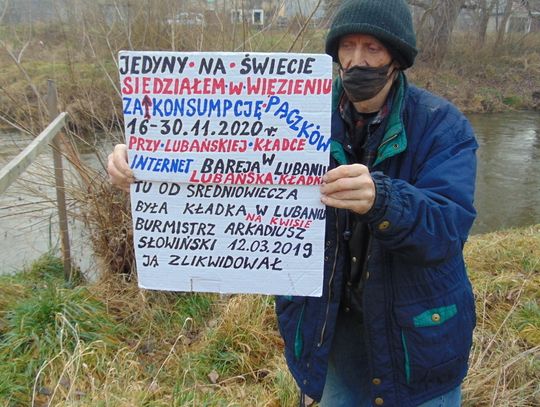 JEDYNY • NA • ŚWIECIE
SIEDZIAŁEM • W • WIĘZIENIU
ZA KONSUMPCJĘ • PĄCZKÓW
16-30.11.2020 r.
PRZY • LUBAŃSKIEJ • KŁADCE
INTERNET BAREJA W LUBANIU
LUBAŃSKA • KŁADKA
TU OD ŚREDNIOWIECZA
BYŁA KŁADKA W LUBANIU
NA KWISIE
BURMISTRZ ARKADIUSZ
SŁOWIŃSKI 12.03.2019
JĄ ZLIKWIDOWAŁ